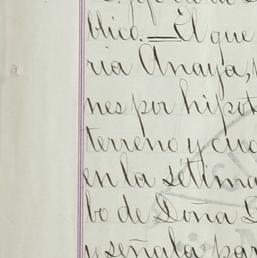 blico.—El que
ria Anaya,
nes por hipot
terreno y cua
en la sétima
bo de Doña
y señala par